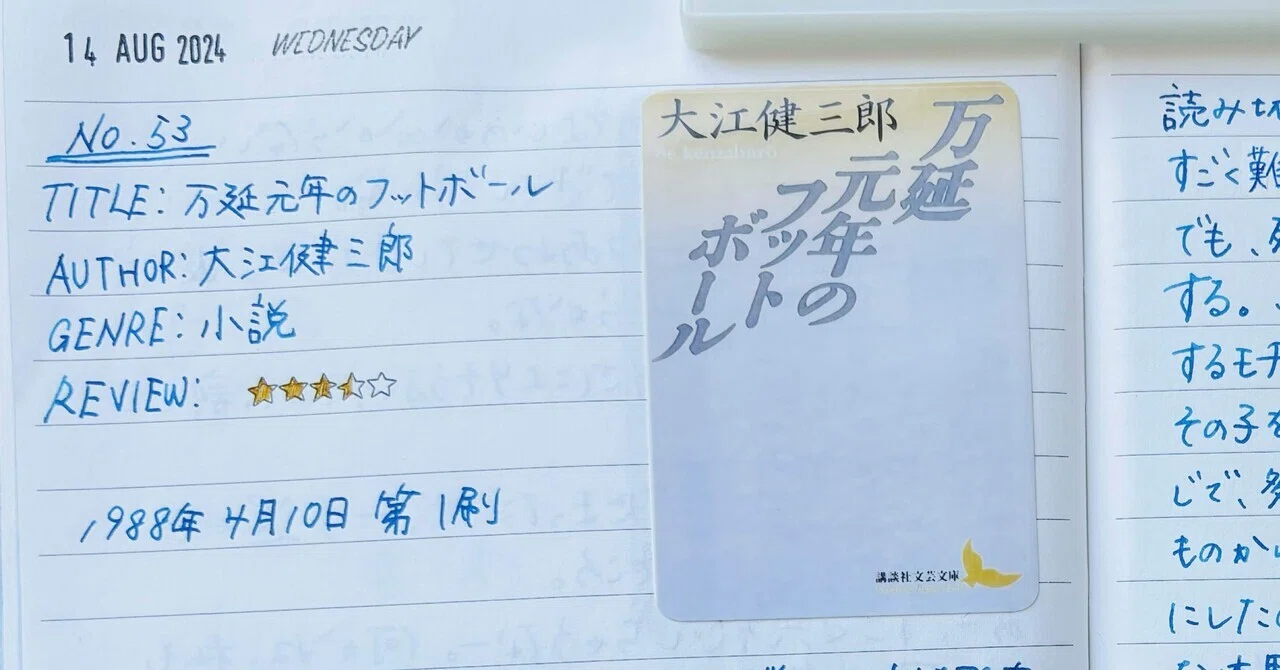 14 AUG 2024 WEDNESDAY
No.53
TITLE: 万延元年のフットボール
AUTHOR: 大江健三郎
GENRE: 小説
REVIEW:
1988年4月10日 第1刷
大江健三郎
Oe kenzaburo
万延
元年の
フット
ボール
講談社文芸文庫
読み
すごく難
でも、
する。
するモチ
その子を
じで、
ものから
にした